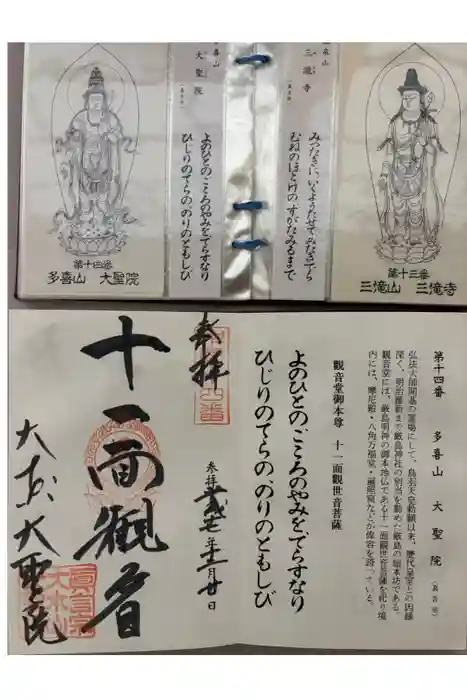 三瀧寺
みつたきに、いくようたせてみなきでら
むねのほとけの、すがたみるまで
第十三番
三滝山　三滝寺
喜山
大聖院
(真言宗)
よのひとの、こころのやみを、てらすなり
ひじりのてらの、のりのともしび
第十四番
多喜山　大聖院
第十四番　多喜山　大聖院（真言宗）
弘法大師開基の霊場にして、鳥羽天皇勅願以来、歴代皇室との因縁
深く、明治維新まで厳島神社の別当を勤めた厳島の総本坊である。
観音堂には、厳島明神の御本地仏である十一面観世音菩薩を祀り境
内には、摩尼殿・八角万福堂・遍照窟などが偉容を誇っている。
観音堂御本尊　十一面観世音菩薩
よのひとの、こころのやみを、てらすなり
ひじりのてらの、のりのともしび
奉拝
参拝
十二月廿日
十一面観音
大聖院